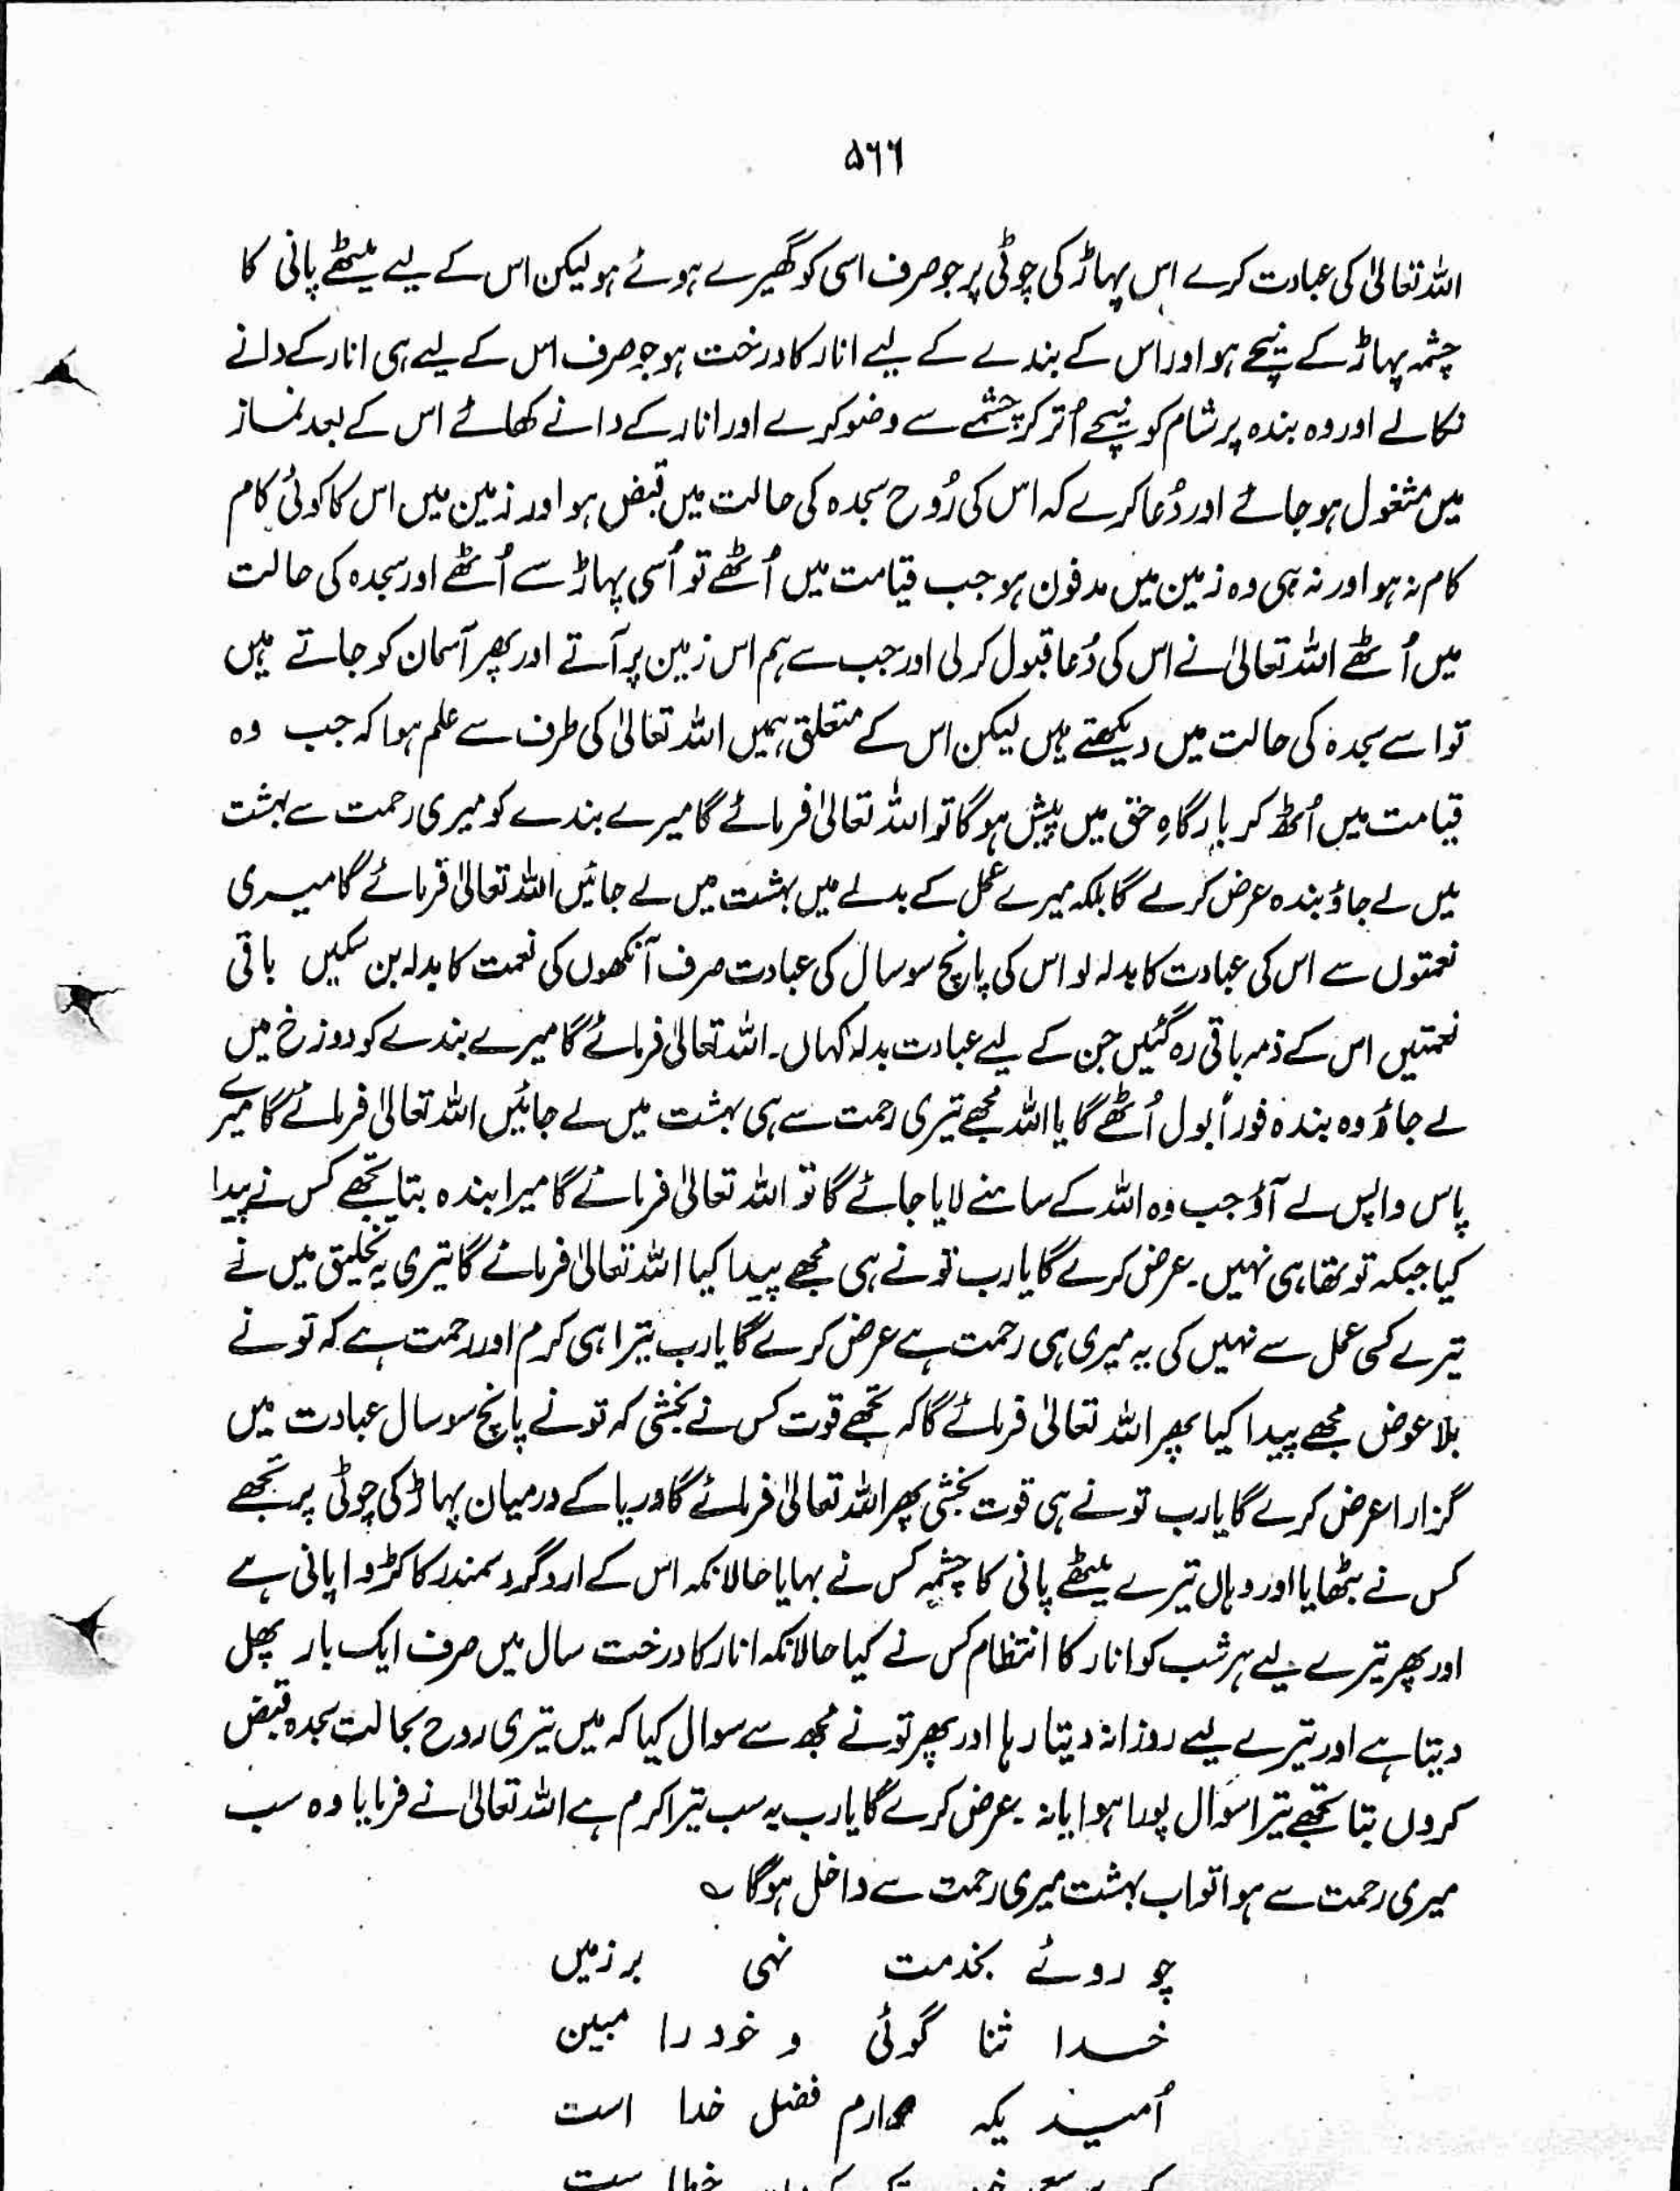 ۵۶۶
اللہ تعالیٰ کی عبادت کرے اس پہاڑ کی چوٹی پر جو صرف اسی کو گھیرے ہوئے ہو لیکن اس کے لیے میٹھے پانی کا
چشمہ پہاڑ کے نیچے ہو اور اس کے بندے کے لیے انار کا درخت ہو جو صرف اس کے لیے ہی انار کے دانے
نکالے اور وہ بندہ ہر شام کو نیچے اُتر کر چشمے سے وضو کرے اور انار کے دانے کھائے اس کے بعد نماز
میں مشغول ہو جائے اور دُعا کرے کہ اس کی رُوح سجدہ کی حالت میں قبض ہو اور زمین میں اس کا کوئی کام
کام نہ ہو اور نہ ہی وہ زمین میں مدفون ہو جب قیامت میں اُٹھے تو اُسی پہاڑ سے اُٹھے اور سجدہ کی حالت
میں اُٹھے اللہ تعالیٰ نے اس کی دُعا قبول کر لی اور جب سے ہم اس زمین پر آتے اور پھر آسمان کو جاتے ہیں
تو اسے سجدہ کی حالت میں دیکھتے ہیں لیکن اس کے متعلق ہمیں اللہ تعالیٰ کی طرف سے علم ہوا کہ جب وہ
قیامت میں اُٹھ کر بارگاہِ حق میں پیش ہو گا تو اللہ تعالیٰ فرمائے گا میرے بندے کو میری رحمت سے بہشت
میں لے جاؤ بندہ عرض کرے گا بلکہ میرے عمل کے بدلے میں بہشت میں لے جائیں اللہ تعالیٰ فرمائے گا میری
نعمتوں سے اس کی عبادت کا بدلہ لو اس کی پانچ سو سال کی عبادت صرف آنکھوں کی نعمت کا بدلہ بن سکیں باقی
نعمتیں اس کے ذمہ باقی رہ گئیں جن کے لیے عبادت بدلہ کہاں۔ اللہ تعالیٰ فرمائے گا میرے بندے کو دوزخ میں
لے جاؤ وہ بندہ فوراً بول اُٹھے گا یا اللہ مجھے تیری رحمت سے ہی بہشت میں لے جائیں اللہ تعالیٰ فرمائے گا میرے
پاس واپس لے آؤ جب وہ اللہ کے سامنے لایا جائے گا تو اللہ تعالیٰ فرمائے گا میرا بندہ بتا تجھے کس نے پیدا
کیا جبکہ تو تھا ہی نہیں۔ عرض کرے گا یارب تو نے ہی مجھے پیدا کیا اللہ تعالیٰ فرمائے گا تیری یہ تخلیق میں نے
تیرے کسی عمل سے نہیں کی یہ میری ہی رحمت ہے عرض کرے گا یارب تیرا ہی کرم اور رحمت ہے کہ تو نے
بلا عوض مجھے پیدا کیا پھر اللہ تعالیٰ فرمائے گا کہ تجھے قوت کس نے بخشی کہ تو نے پانچ سو سال عبادت میں
گزارا عرض کرے گا یارب تو نے ہی قوت بخشی پھر اللہ تعالیٰ فرمائے گا دریا کے درمیان پہاڑ کی چوٹی پر تجھے
کس نے بٹھایا اور وہاں تیرے میٹھے پانی کا چشمہ کس نے بہایا حالانکہ اس کے اردگرد سمندر کا کڑوا پانی ہے
اور پھر تیرے لیے ہر شب کو انار کا انتظام کس نے کیا حالانکہ انار کا درخت سال میں صرف ایک بار پھل
دیتا ہے اور تیرے لیے روزانہ دیتا رہا اور پھر تو نے مجھ سے سوال کیا کہ میں تیری روح بحالت سجدہ قبض
کروں بتا تجھے تیرا سوال پورا ہوا یا نہ۔ عرض کرے گا یارب یہ سب تیرا کرم ہے اللہ تعالیٰ نے فرمایا وہ سب
میری رحمت سے ہوا تو اب بہشت میری رحمت سے داخل ہو گا ؎
چو روئے بخدمت نہی بر زمیں
خدا ثنا گوئی و خود را مبین
اُمید یکہ دارم فضل خدا است